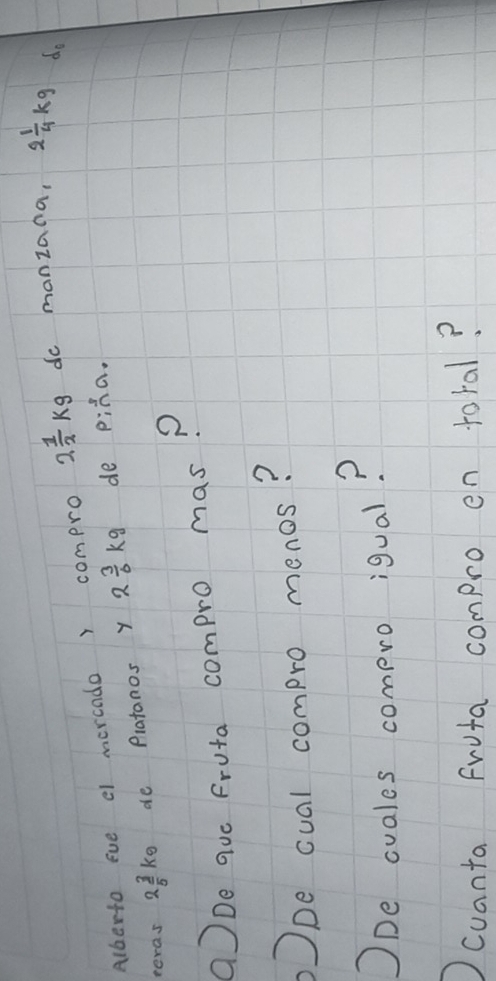 Alberto fue al mercado y compro 2 1/2 Kg de manzana, 2 1/4 kg de
peras 2 3/5 kg de Platanos y 2 3/6 kg de piña.
a) De que Fruta compro mas?
b) De cual compro menos?
) De cuales compro igual?
) Cuanta Fruta compro en total?